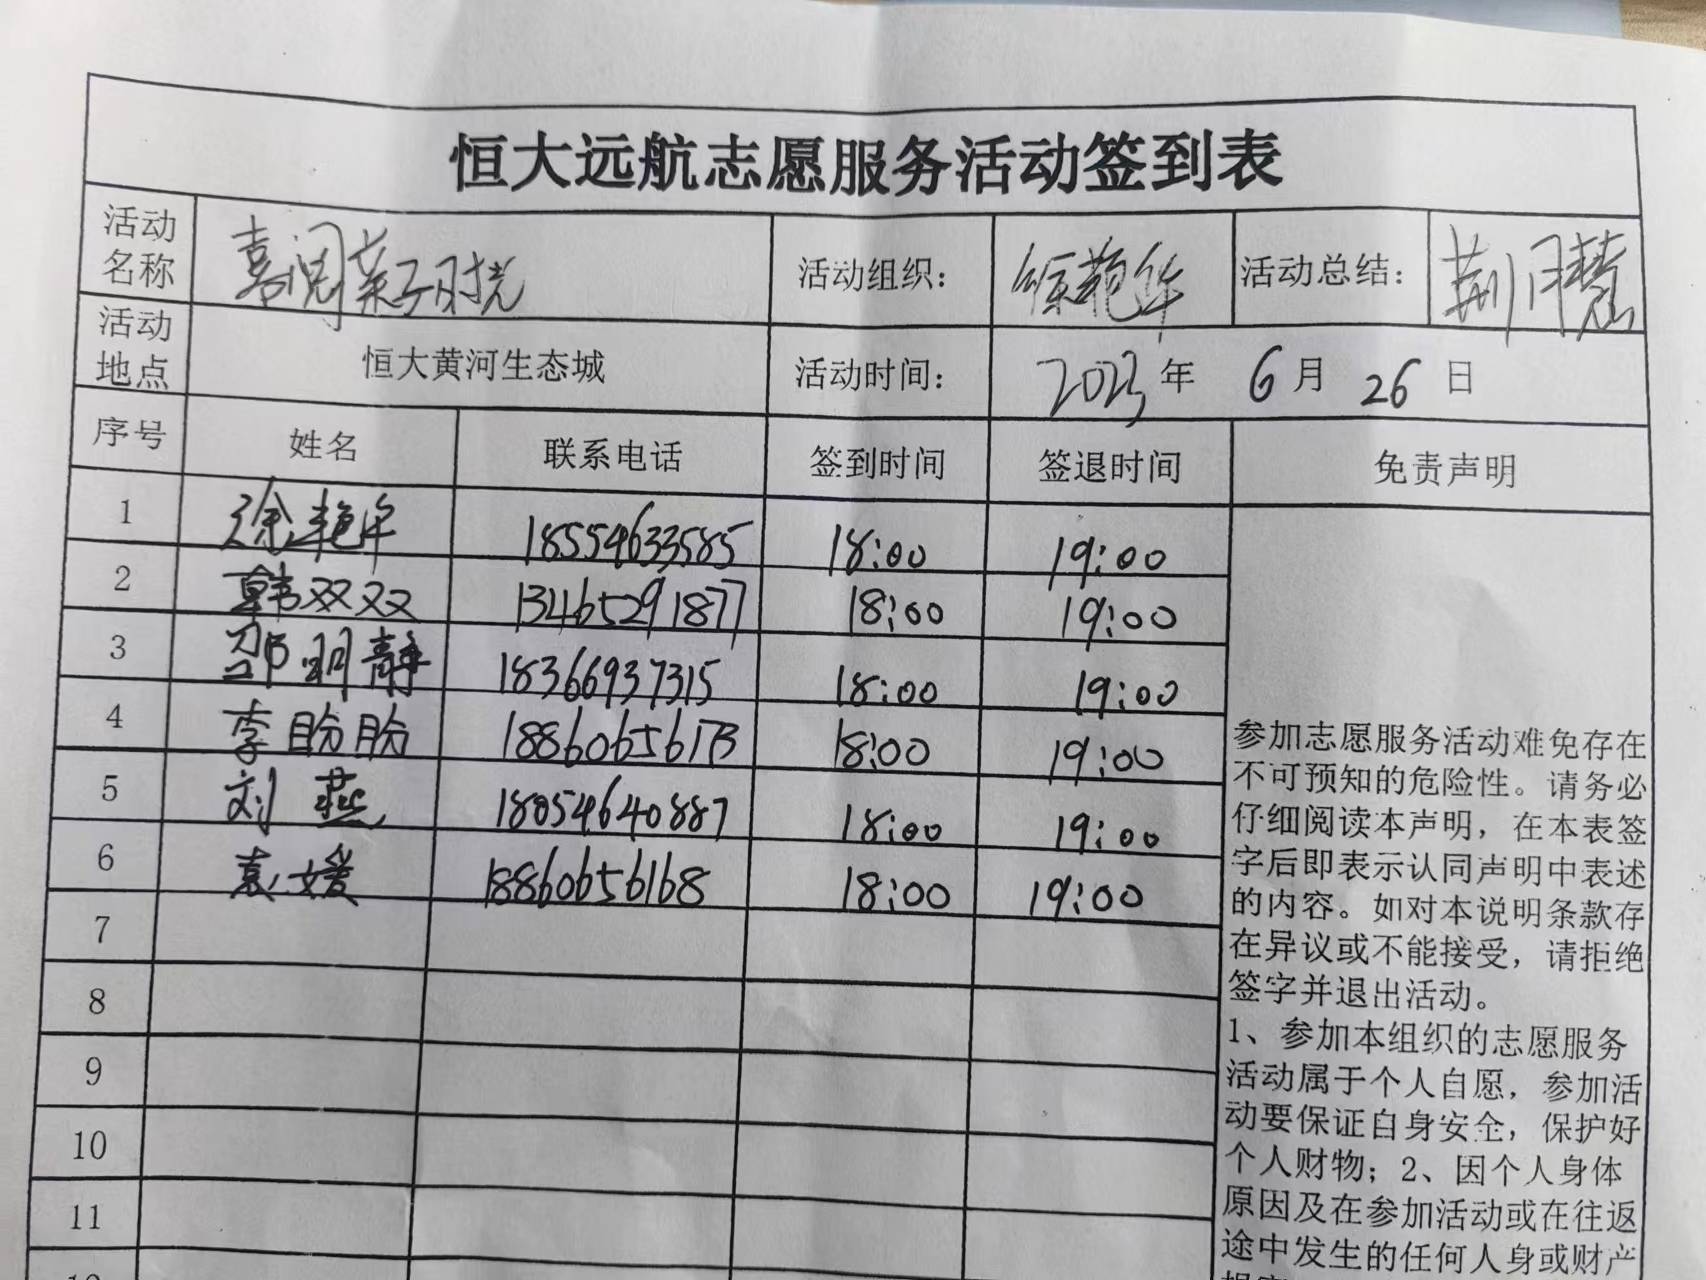 恒大远航志愿服务活动签到表
活动名称 喜阅亲子时光 活动组织： 徐艳华 活动总结： 荆月慧
活动地点 恒大黄河生态城 活动时间： 2023年 6月 26日
序号 姓名 联系电话 签到时间 签退时间 免责声明
1 徐艳华 18554633585 18:00 19:00
2 韩双双 13465291877 18:00 19:00
3 邵明静 18366937315 18:00 19:00
4 李盼盼 18860656173 18:00 19:00
5 刘燕 18054640887 18:00 19:00
6 袁媛 18860656168 18:00 19:00
7
8
9
10
11
参加志愿服务活动难免存在
不可预知的危险性。请务必
仔细阅读本声明，在本表签
字后即表示认同声明中表述
的内容。如对本说明条款存
在异议或不能接受，请拒绝
签字并退出活动。
1、参加本组织的志愿服务
活动属于个人自愿，参加活
动要保证自身安全，保护好
个人财物；2、因个人身体
原因及在参加活动或在往返
途中发生的任何人身或财产